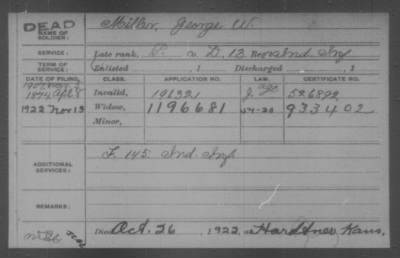 DEAD
NAME OF SOLDIER:
Miller, George W.
SERVICE:
Late rank, P. Co. D, 13 Reg't Ind Inf
TERM OF SERVICE:
Enlisted , 1
Discharged , 1
DATE OF FILING. CLASS. APPLICATION NO. LAW. CERTIFICATE NO.
Invalid, 196321 526892
1922 Nov 13 Widow, 1196681 933402
Minor,
ADDITIONAL SERVICES:
F. 145 Ind. Inf
REMARKS:
Died Oct. 26 , 1922, at Hardtner, Kans.